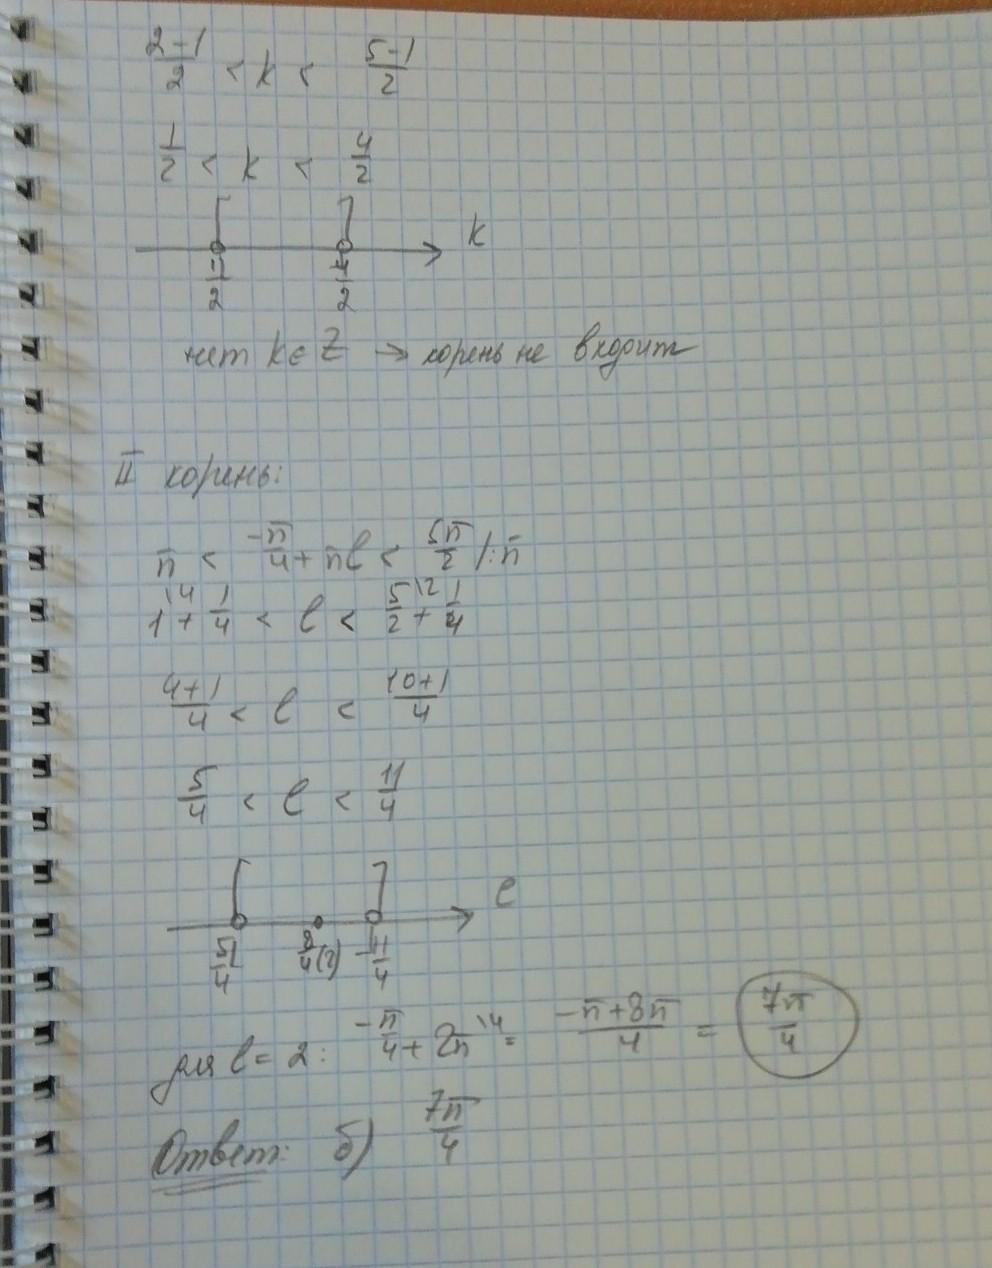 2-1/2 < k < 5-1/2
1/2 < k < 4/2
k
1/2 4/2
нет k ∈ Z → корень не входит
II корень:
π < -π/4 + πl < 5π/2 /:π
1\4 + 1/4 < l < 5/2\2 + 1/4
4+1/4 < l < 10+1/4
5/4 < l < 11/4
l
5/4 8/4(2) 11/4
для l = 2: -π/4 + 2π\4 = -π+8π/4 = 7π/4
Ответ: б) 7π/4